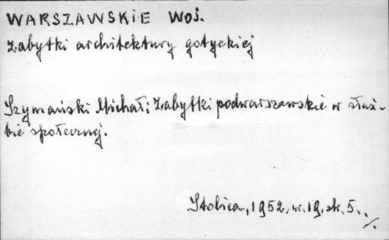 WARSZAWSKIE WOJ.
Zabytki architektury gotyckiej
Szymański Michał: Zabytki podwarszawskie w służ-
bie społecznej.
Stolica, 1952. nr. 19. str. 5.
./.